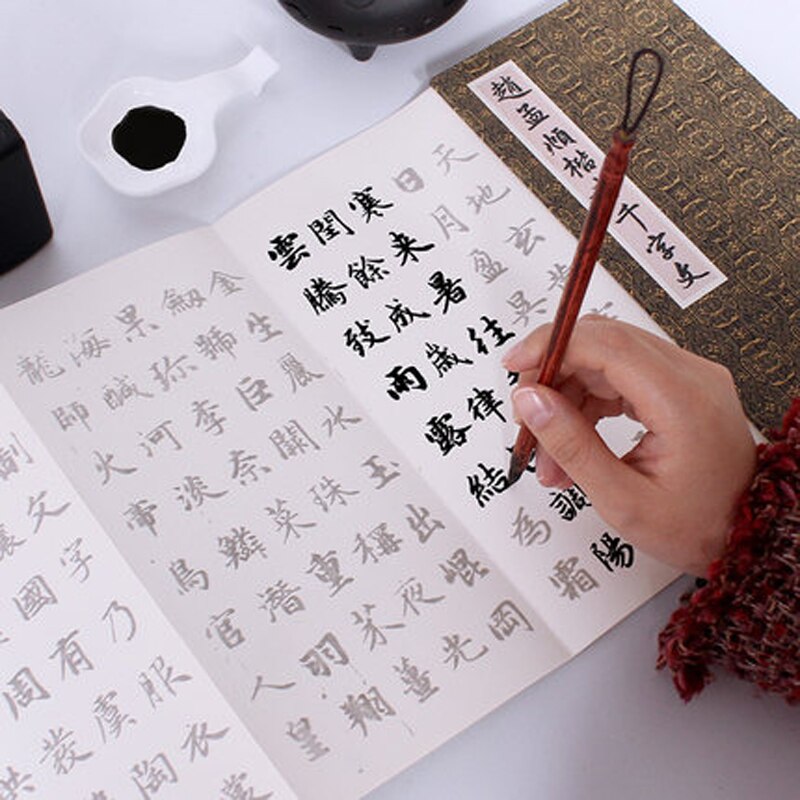 趙孟頫楷千字文
天地玄
日月盈昃
寒来暑往
閏餘成歲律調陽
雲騰致雨露結為霜
金生麗水玉出崐岡
劔號巨闕珠稱夜光
果珎李柰菜重芥薑
海鹹河淡鱗潜羽翔
龍師火帝鳥官人皇
制文字乃服衣裳
讓國有虞陶
周發
拱